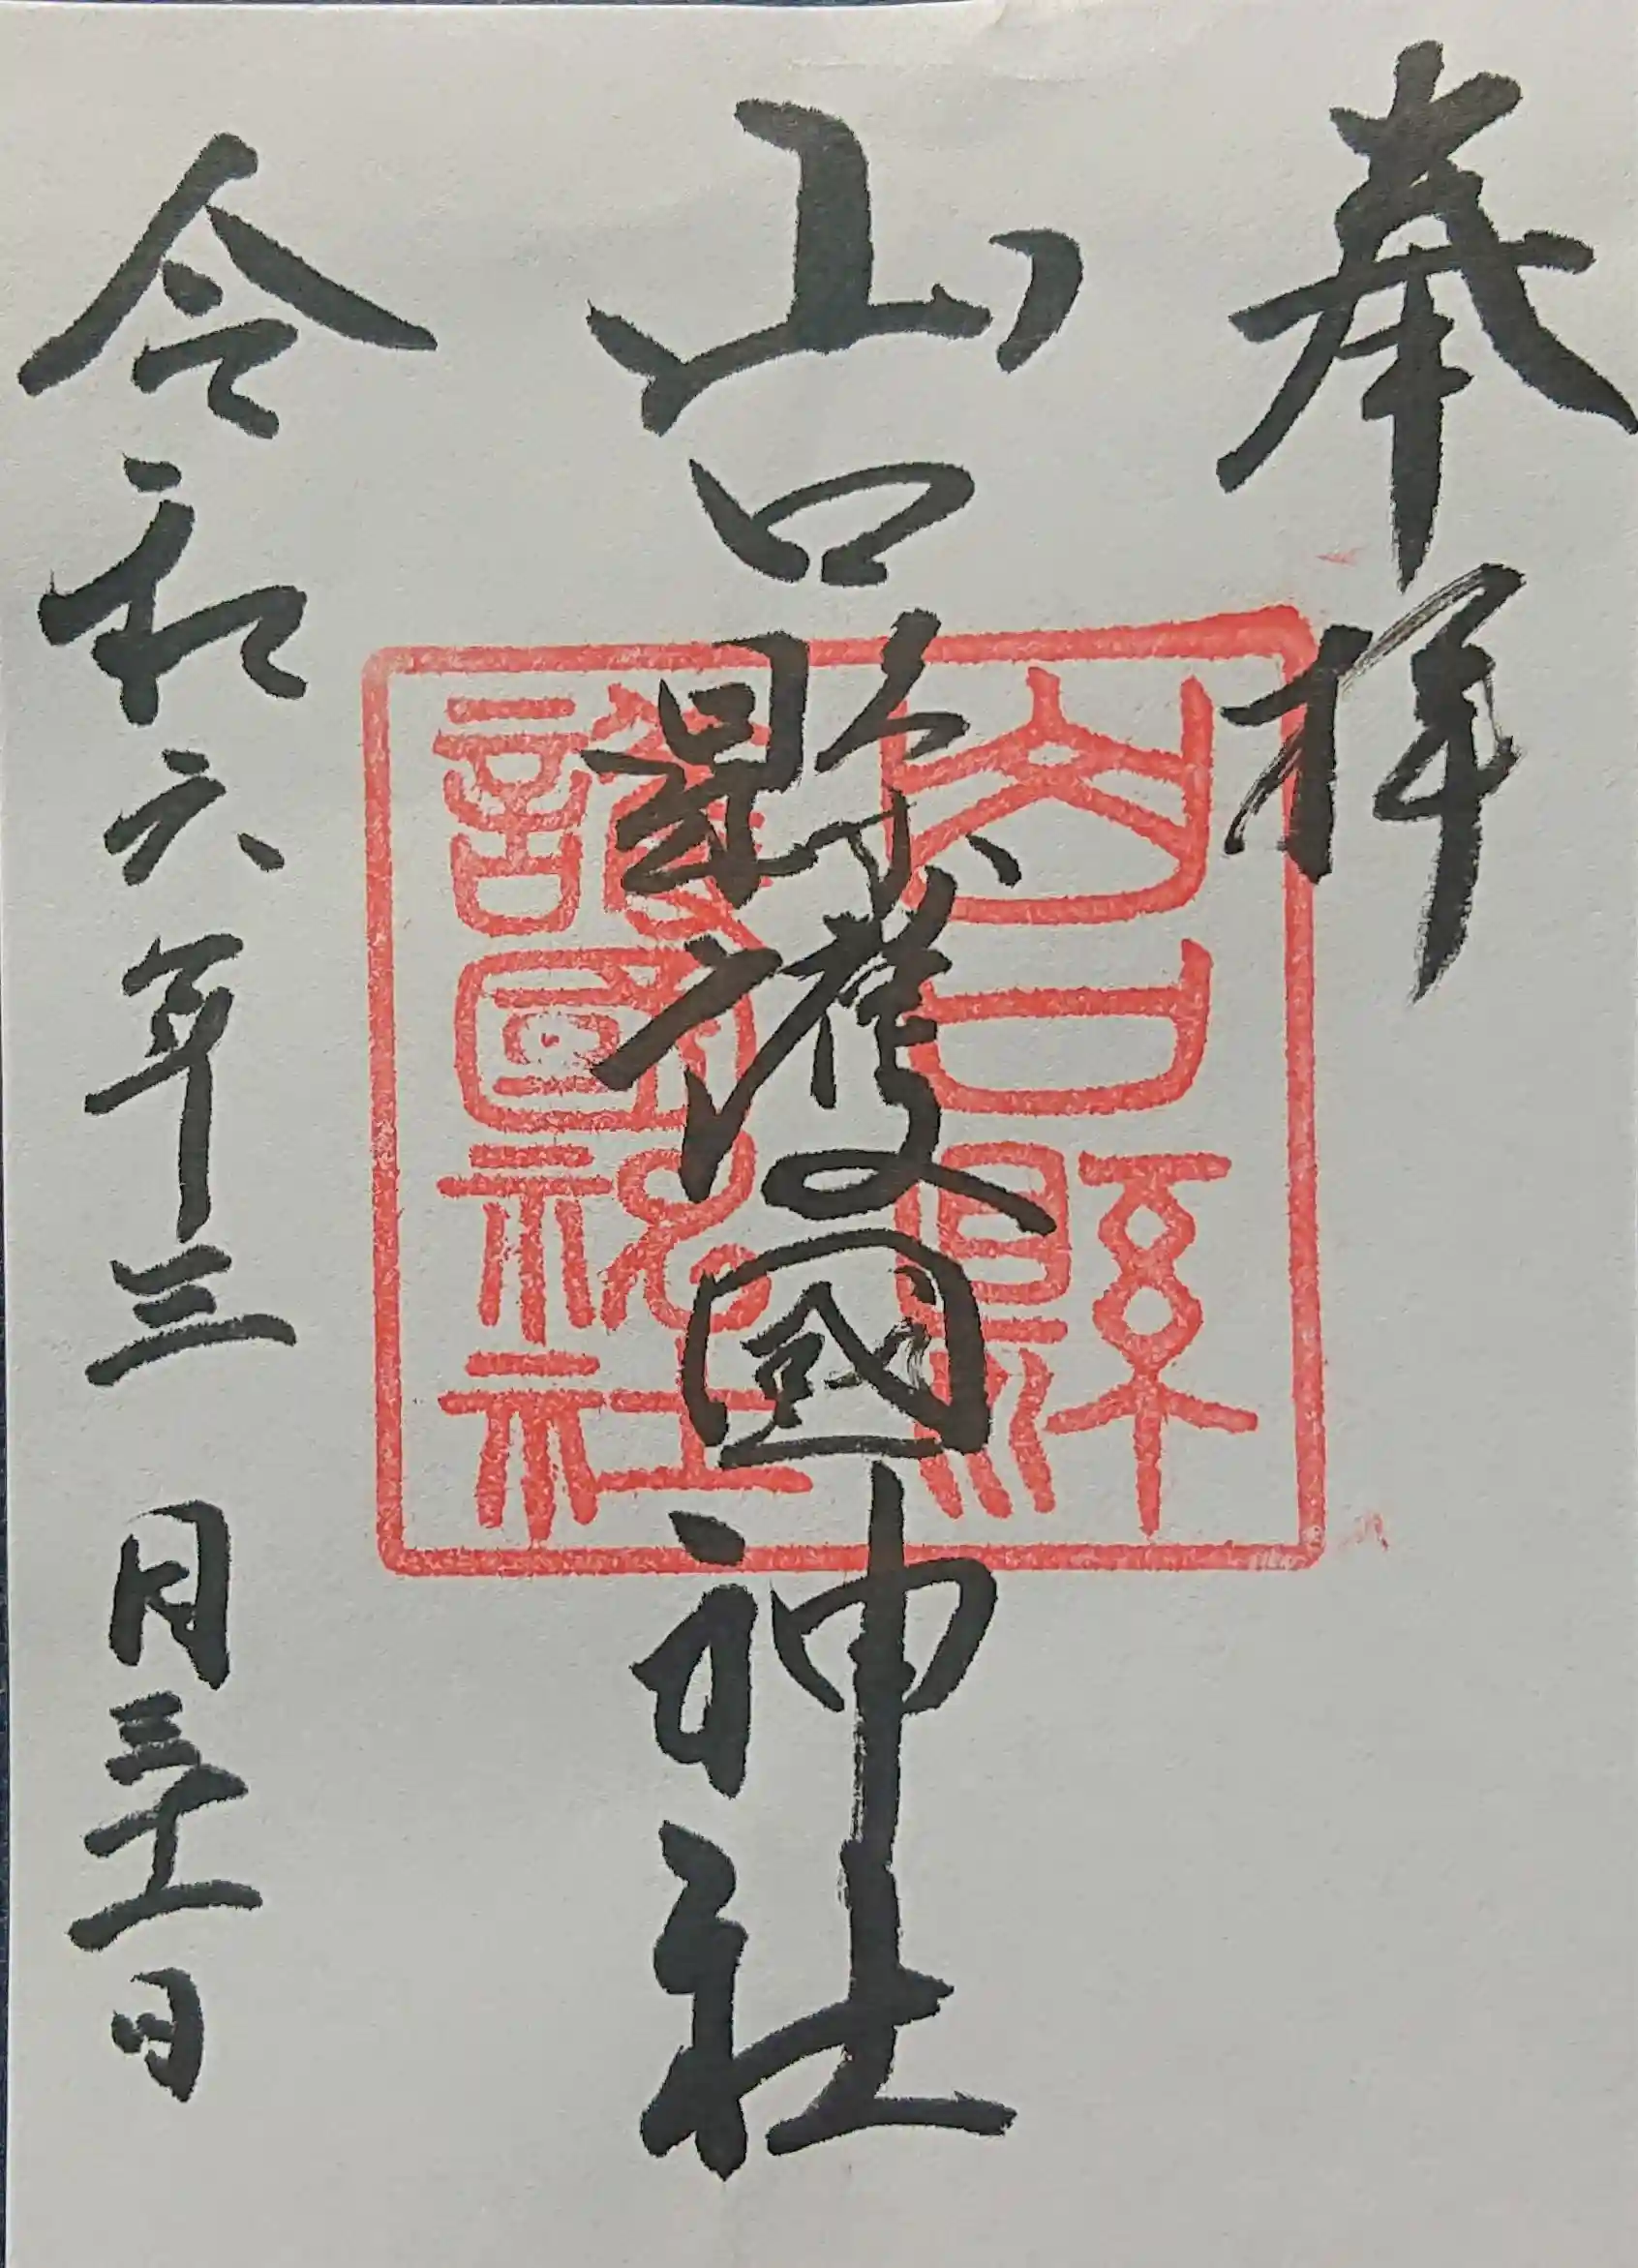 奉拝
山口縣護國神社
令和六年三月三十一日
山口縣
護國神社